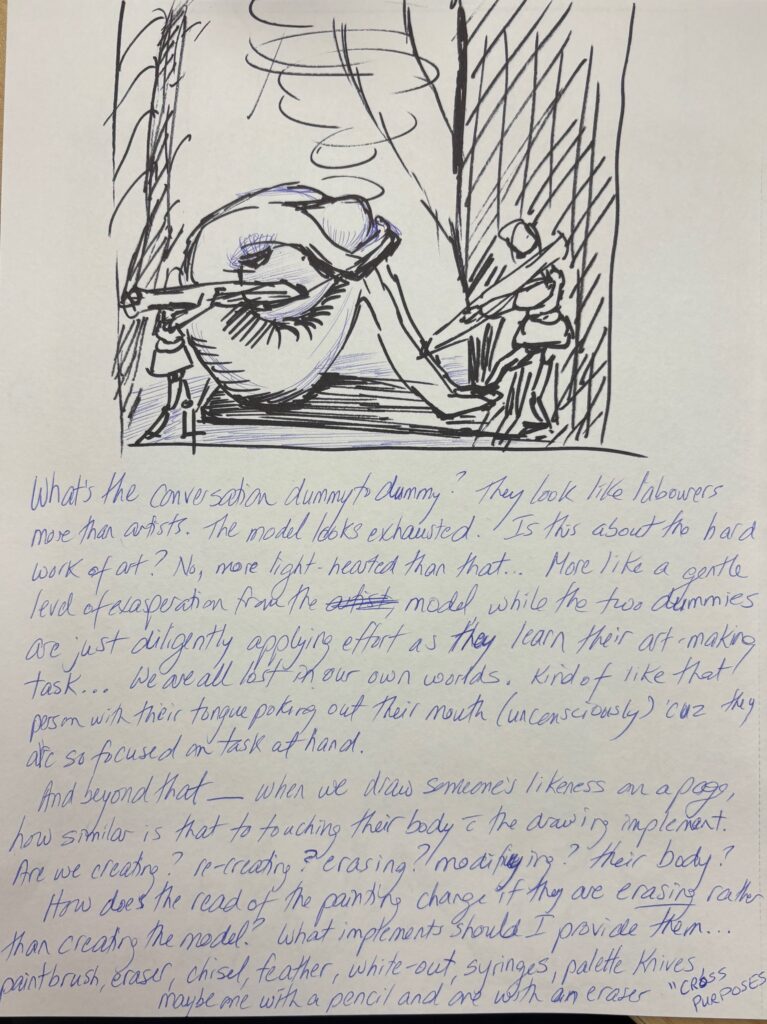 What's the conversation dummy to dummy? They look like labourers
more than artists. The model looks exhausted. Is this about the hard
work of art? No, more light-hearted than that... More like a gentle
level of exasperation from the artist, model, while the two dummies
are just diligently applying effort as they learn their art-making
task... We are all lost in our own worlds. Kind of like that
person with their tongue poking out their mouth (unconsciously) 'cuz they
are so focused on task at hand.
And beyond that — when we draw someone's likeness on a page,
how similar is that to touching their body c̄ the drawing implement.
Are we creating? re-creating? erasing? modifying? their body?
How does the read of the painting change if they are erasing rather
than creating the model? What implements should I provide them...
paintbrush, eraser, chisel, feather, white-out, syringes, palette knives,
maybe one with a pencil and one with an eraser "CROSS
PURPOSES